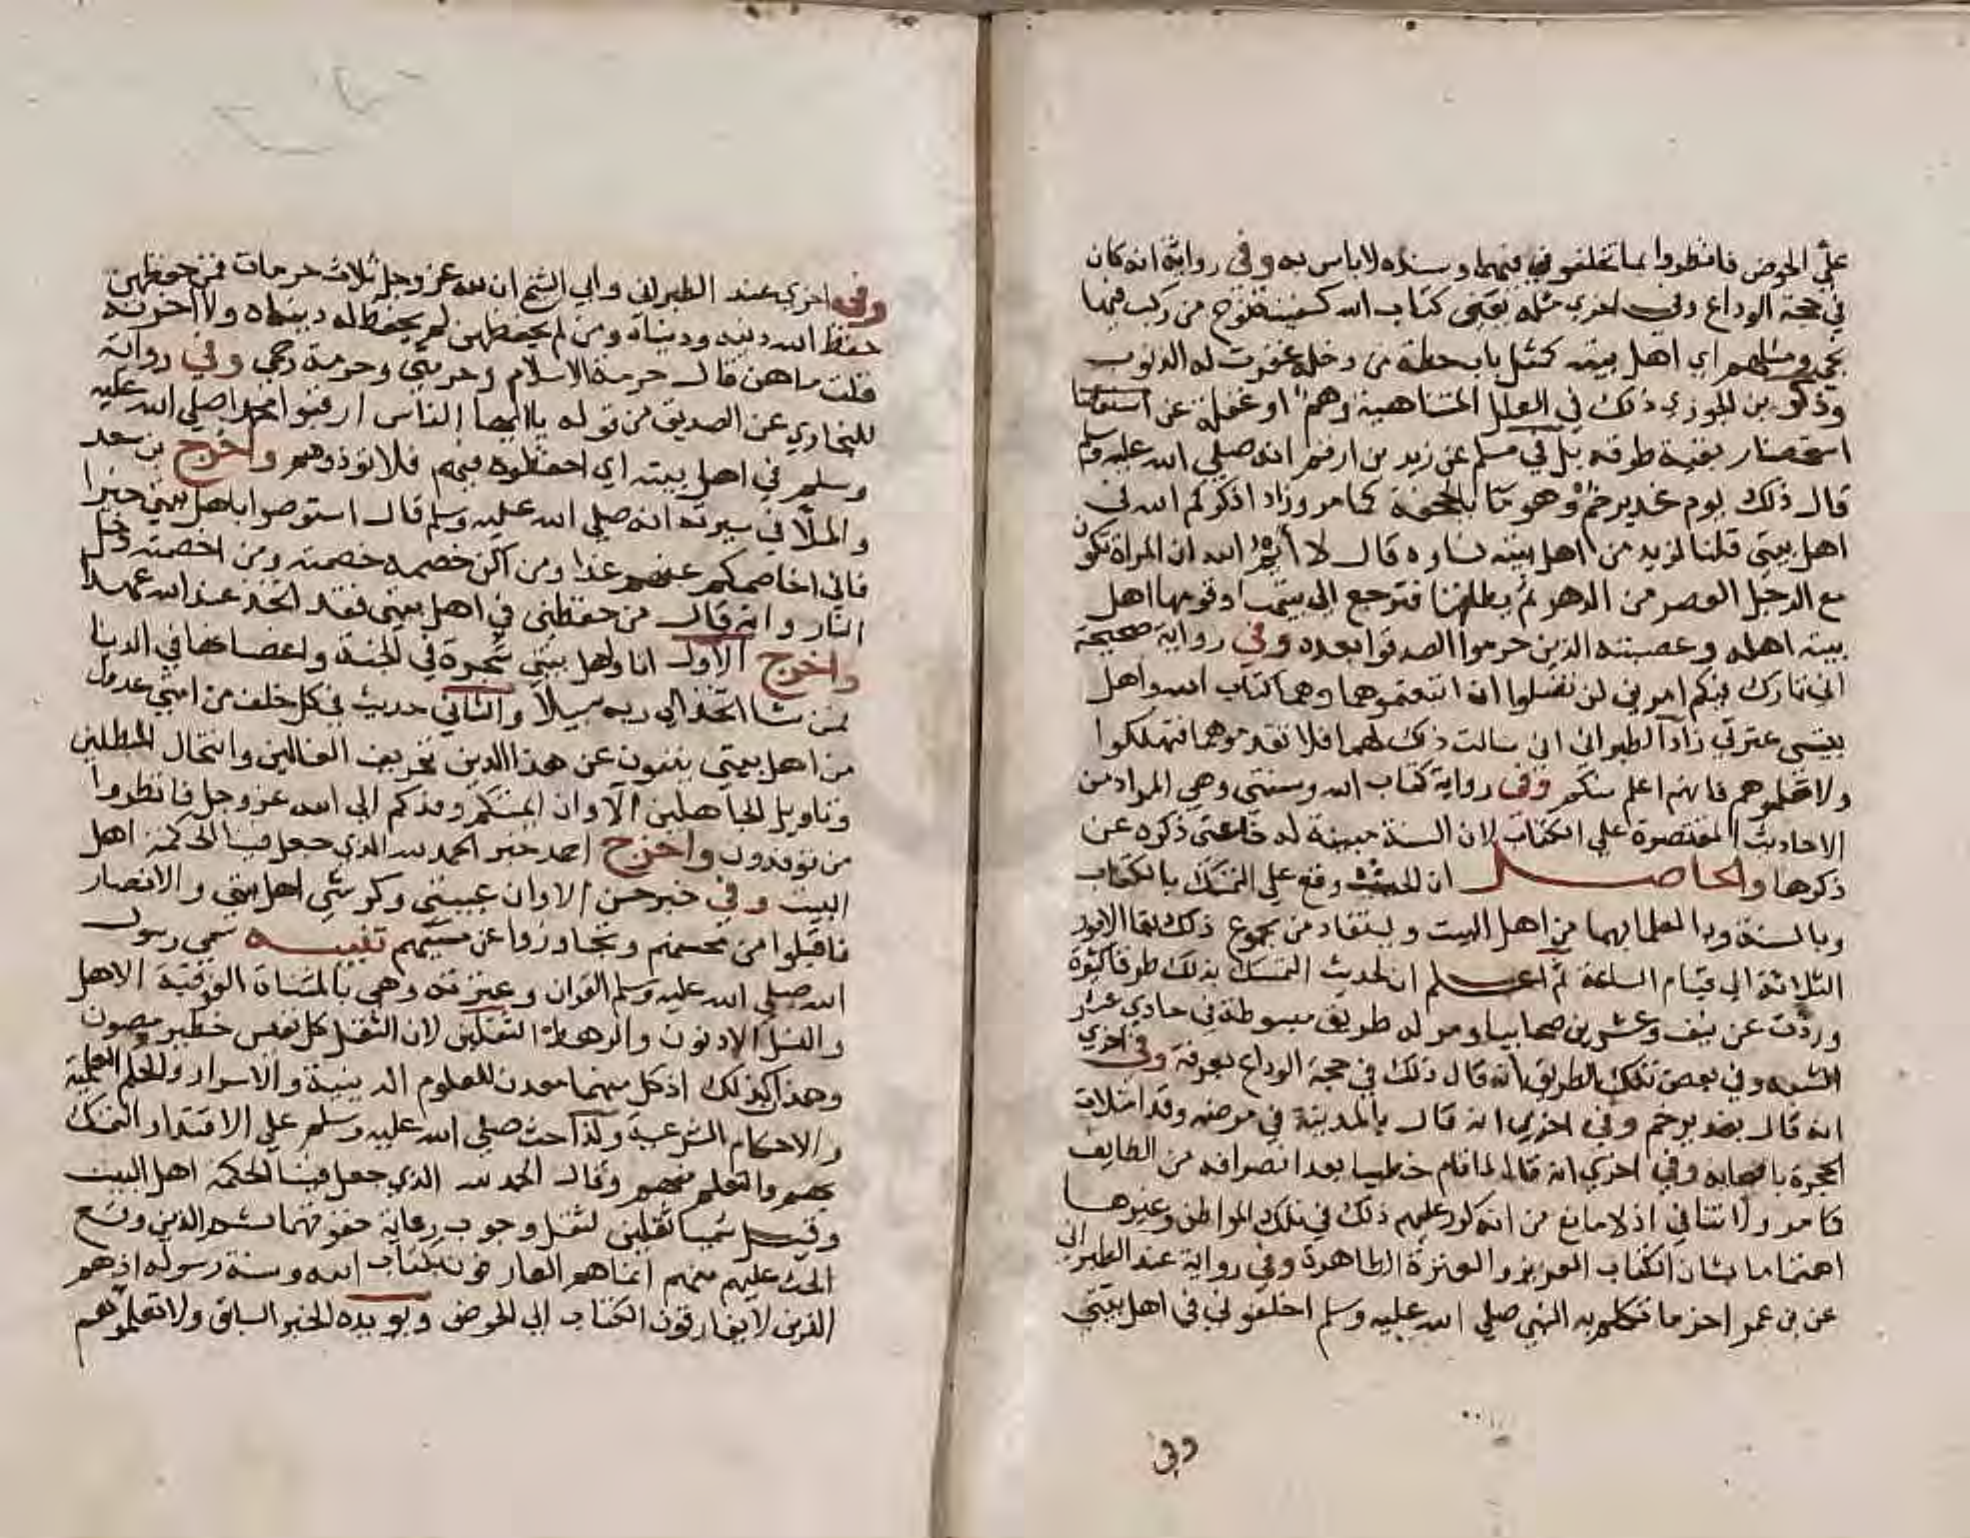 على الحوض فانظروا بما تخلفوني فيهما وسنده لا باس به وفي رواية ان ذلك كان
في حجة الوداع وفي اخرى مثله يعني كتاب الله كسفينة نوح من ركب فيها
نجى ومثلهم اي اهل بيته كمثل باب حطة من دخله غفرت له الذنوب
وذكر بن الجوزي ذلك في العلل المتناهية وهم او غفلة عن
استحضار بقية طرقه بل في مسلم عن زيد بن ارقم انه صلي الله عليه وسلم
قال ذلك يوم غدير خم وهو ما بالجحفة كما مر وزاد اذكركم الله في
اهل بيتي قلنا لزيد من اهل بيته نساوه قال لا أيم الله ان المراة تكون
مع الرجل العصر من الدهر ثم يطلقها فترجع الى بيتها وقومها اهل
بيته اهله وعصبته الذين حرموا الصدقة بعده وفي رواية صحيحة
اني تارك فيكم امرين لن تضلوا ان اتبعتموهما وهما كتاب الله واهل
بيتي عترتي زاد الطبراني اني سالت ذلك لهما فلا تقدموهما فتهلكوا
ولا تعلموهم فانهم اعلم منكم وفي رواية كتاب الله وسنتي وهي المراد من
الاحاديث المقتصرة علي الكتاب لان السنة مبينة له فاغنى ذكره عن
ذكرها والحاصل ان الحث وقع علي التمسك بالكتاب
وبالسنة وبالعلما بهما من اهل البيت ويستفاد من مجموع ذلك بقا الامور
الثلاثة الى قيام الساعة ثم اعلم ان لحديث التمسك بذلك طرقا كثيرة
وردت عن نيف وعشرين صحابيا ومر له طريق مبسوطة في حادي عشر
الشبه وفي بعض تلك الطريق انه قال ذلك في حجة الوداع بعرفة وفي اخري
انه قال بغدير خم وفي اخري انه قال بالمدينة في مرضه وقد امتلات
الحجرة باصحابه وفي اخري انه قال لما قام خطيبا بعد انصرافه من الطايف
كما مر ولا تنافي اذ لا مانع من انه كرر عليهم ذلك في تلك المواطن وغيرها
اهتماما بشان الكتاب العزيز والعترة الطاهرة وفي رواية عند الطبراني
عن بن عمر اخر ما تكلم به النبي صلي الله عليه وسلم اخلفوني في اهل بيتي
وفي
وفي اخري عند الطبراني وابي الشيخ ان لله عز وجل ثلاث حرمات فمن حفظهن
حفظ الله دينه ودنياه ومن لم يحفظهن لم يحفظ له دنياه ولا اخرته
قلت ما هن قال حرمة الاسلام وحرمتي وحرمة رحمي وفي رواية
للبخاري عن الصديق من قوله يا ايها الناس ارقبوا محمدا صلي الله عليه
وسلم في اهل بيته اي احفظوه فيهم فلا توذوهم واخرج بن سعد
والملا في سيرته انه صلي الله عليه وسلم قال استوصوا باهل بيتي خيرا
فاني اخاصمكم عنهم غدا ومن اكن خصمه خصمته ومن اخصمته دخل
النار وانه قال من حفظني في اهل بيتي فقد اتخذ عند الله عهدا
واخرج الاول انا واهل بيتي شجرة في الجنة واغصانها في الدنيا
فمن شا اتخذ الي ربه سبيلا والثاني حديث في كل خلف من امتي عدول
من اهل بيتي ينفون عن هذا الدين تحريف الغالين وانتحال المبطلين
وتاويل الجاهلين الا وان ايمتكم وفدكم الى الله عز وجل فانظروا
من توفدون واخرج احمد خبر الحمد لله الذي جعل فينا الحكمة اهل
البيت وفي خبر حسن الا وان عيبتي وكرشي اهل بيتي والانصار
فاقبلوا من محسنهم وتجاوزوا عن مسيئهم تنبيه سمي رسول
الله صلي الله عليه وسلم القران وعترته وهي بالمثناة الفوقية الاهل
والنسل الادنون والرهط الثقلين لان الثقل كل نفيس خطير مصون
وهذان كذلك اذ كل منهما معدن للعلوم الدينية والاسرار والحكم العلية
والاحكام الشرعية ولذا حث صلي الله عليه وسلم علي الاقتدا والتمسك
بهم والتعلم منهم وقال الحمد لله الذي جعل فينا الحكمة اهل البيت
وقيل سميا ثقلين لثقل وجوب رعاية حقوقهما ثم الذين وقع
الحث عليهم منهم انما هم العارفون بكتاب الله وسنة رسوله اذ هم
الذين لا يفارقون الكتاب الى الحوض ويويده الخبر السابق ولا تعلموهم